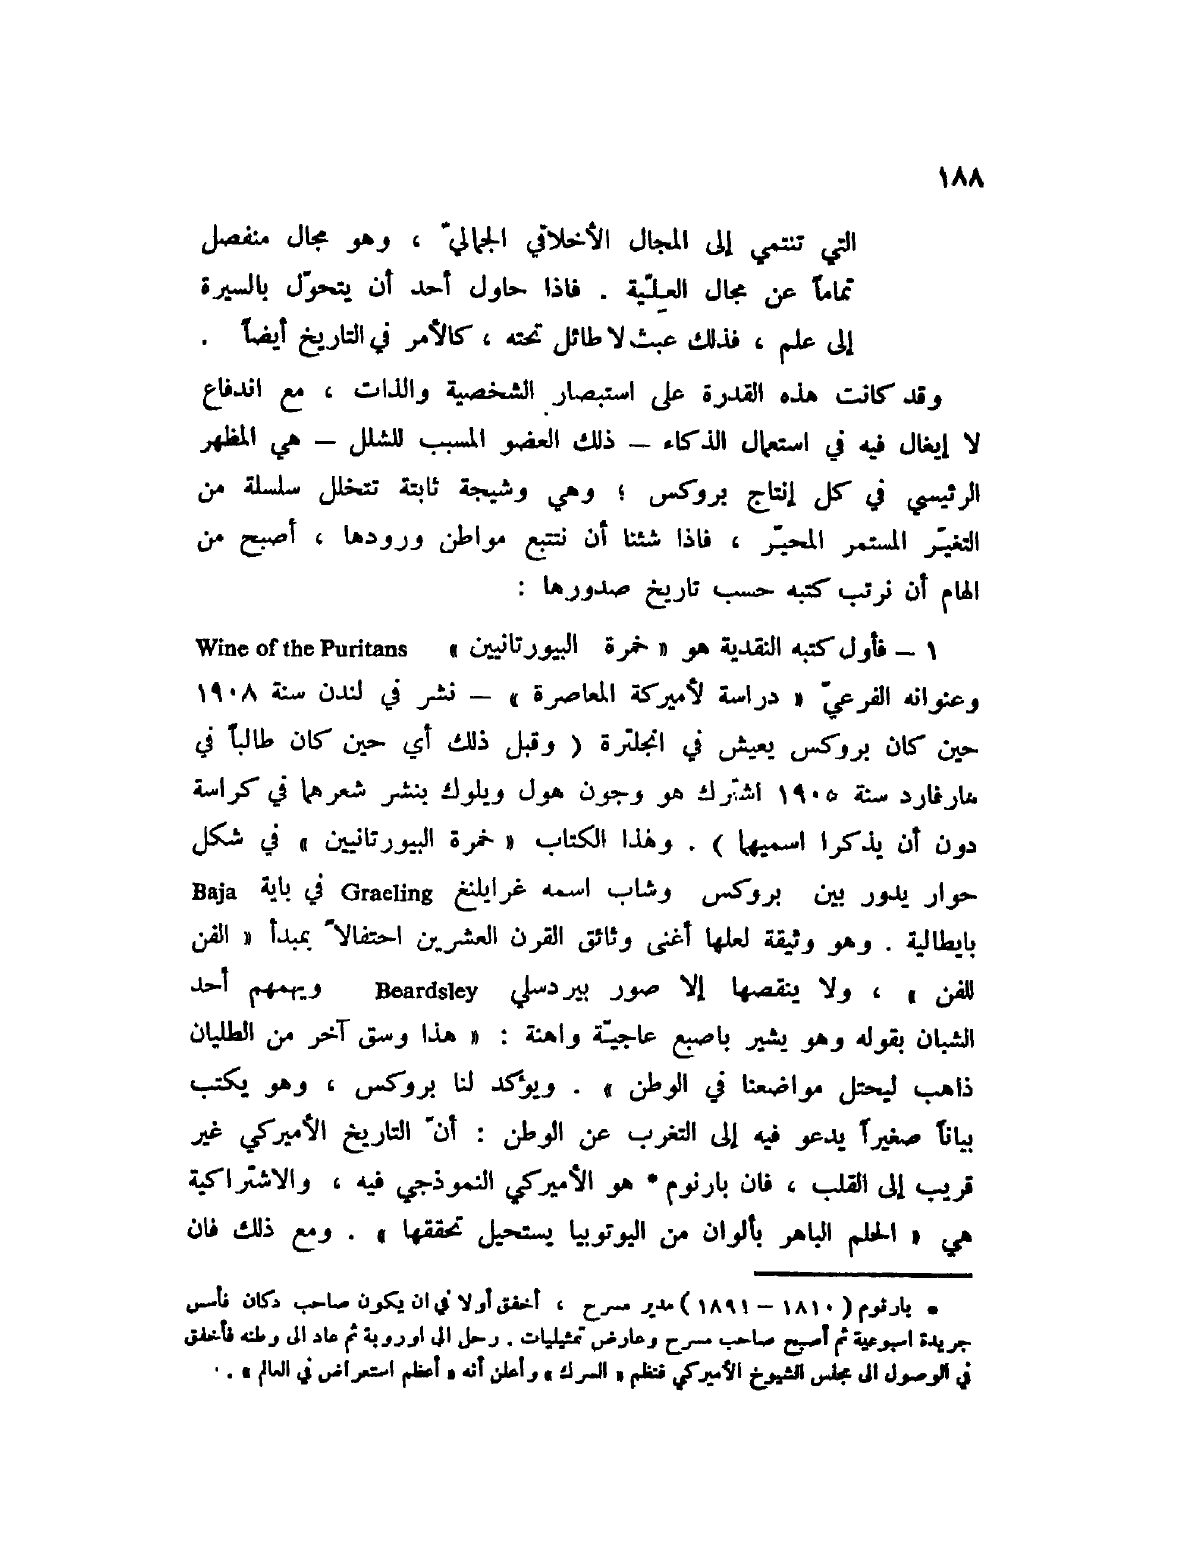 ١٨٨
التي تنتمي إلى المجال الأخلاقي الجماليّ ، وهو مجال منفصل
تماماً عن مجال العلّيّة . فاذا حاول أحد أن يتحوّل بالسيرة
إلى علم ، فذلك عبث لا طائل تحته ، كالأمر في التاريخ أيضاً .
وقد كانت هذه القدرة على استبصار الشخصية والذات ، مع اندفاع
لا إيغال فيه في استعمال الذكاء – ذلك العضو المسبب للشلل – هي المظهر
الرئيسي في كل إنتاج بروكس ؛ وهي وشيجة ثابتة تتخلل سلسلة من
التغيّر المستمر المحيّر ، فاذا شئنا أن نتتبع مواطن ورودها ، أصبح من
الهام أن نرتب كتبه حسب تاريخ صدورها :
١ – فأول كتبه النقدية هو « خمرة البيورتانيين » Wine of the Puritans
وعنوانه الفرعيّ « دراسة لأميركة المعاصرة » – نشر في لندن سنة ١٩٠٨
حين كان بروكس يعيش في انجلترة ( وقبل ذلك أي حين كان طالباً في
هارفارد سنة ١٩٠٥ اشترك هو وجون هول ويلوك بنشر شعرهما في كراسة
دون أن يذكرا اسميهما ) . وهذا الكتاب « خمرة البيورتانيين » في شكل
حوار يدور بين بروكس وشاب اسمه غرايلنغ Graeling في باية Baja
بايطالية . وهو وثيقة لعلها أغنى وثائق القرن العشرين احتفالاً بمبدأ « الفن
للفن » ، ولا ينقصها إلا صور بيردسلي Beardsley ويهمهم أحد
الشبان بقوله وهو يشير باصبع عاجيّة واهنة : « هذا وسق آخر من الطليان
ذاهب ليحتل مواضعنا في الوطن » . ويؤكد لنا بروكس ، وهو يكتب
بياناً صغيراً يدعو فيه إلى التغرب عن الوطن : أنّ التاريخ الأميركي غير
قريب إلى القلب ، فان بارنوم * هو الأميركي النموذجي فيه ، والاشتراكية
هي « الحلم الباهر بألوان من اليوتوبيا يستحيل تحققها » . ومع ذلك فان
* بارنوم ( ١٨١٠ – ١٨٩١ ) مدير مسرح ، أخفق أولا في ان يكون صاحب دكان فأسس
جريدة اسبوعية ثم أصبح صاحب مسرح وعارض تمثيليات . رحل الى اوروبة ثم عاد الى وطنه فأخفق
في الوصول الى مجلس الشيوخ الأميركي فنظم « السرك » وأعلن أنه « أعظم استعراض في العالم » .